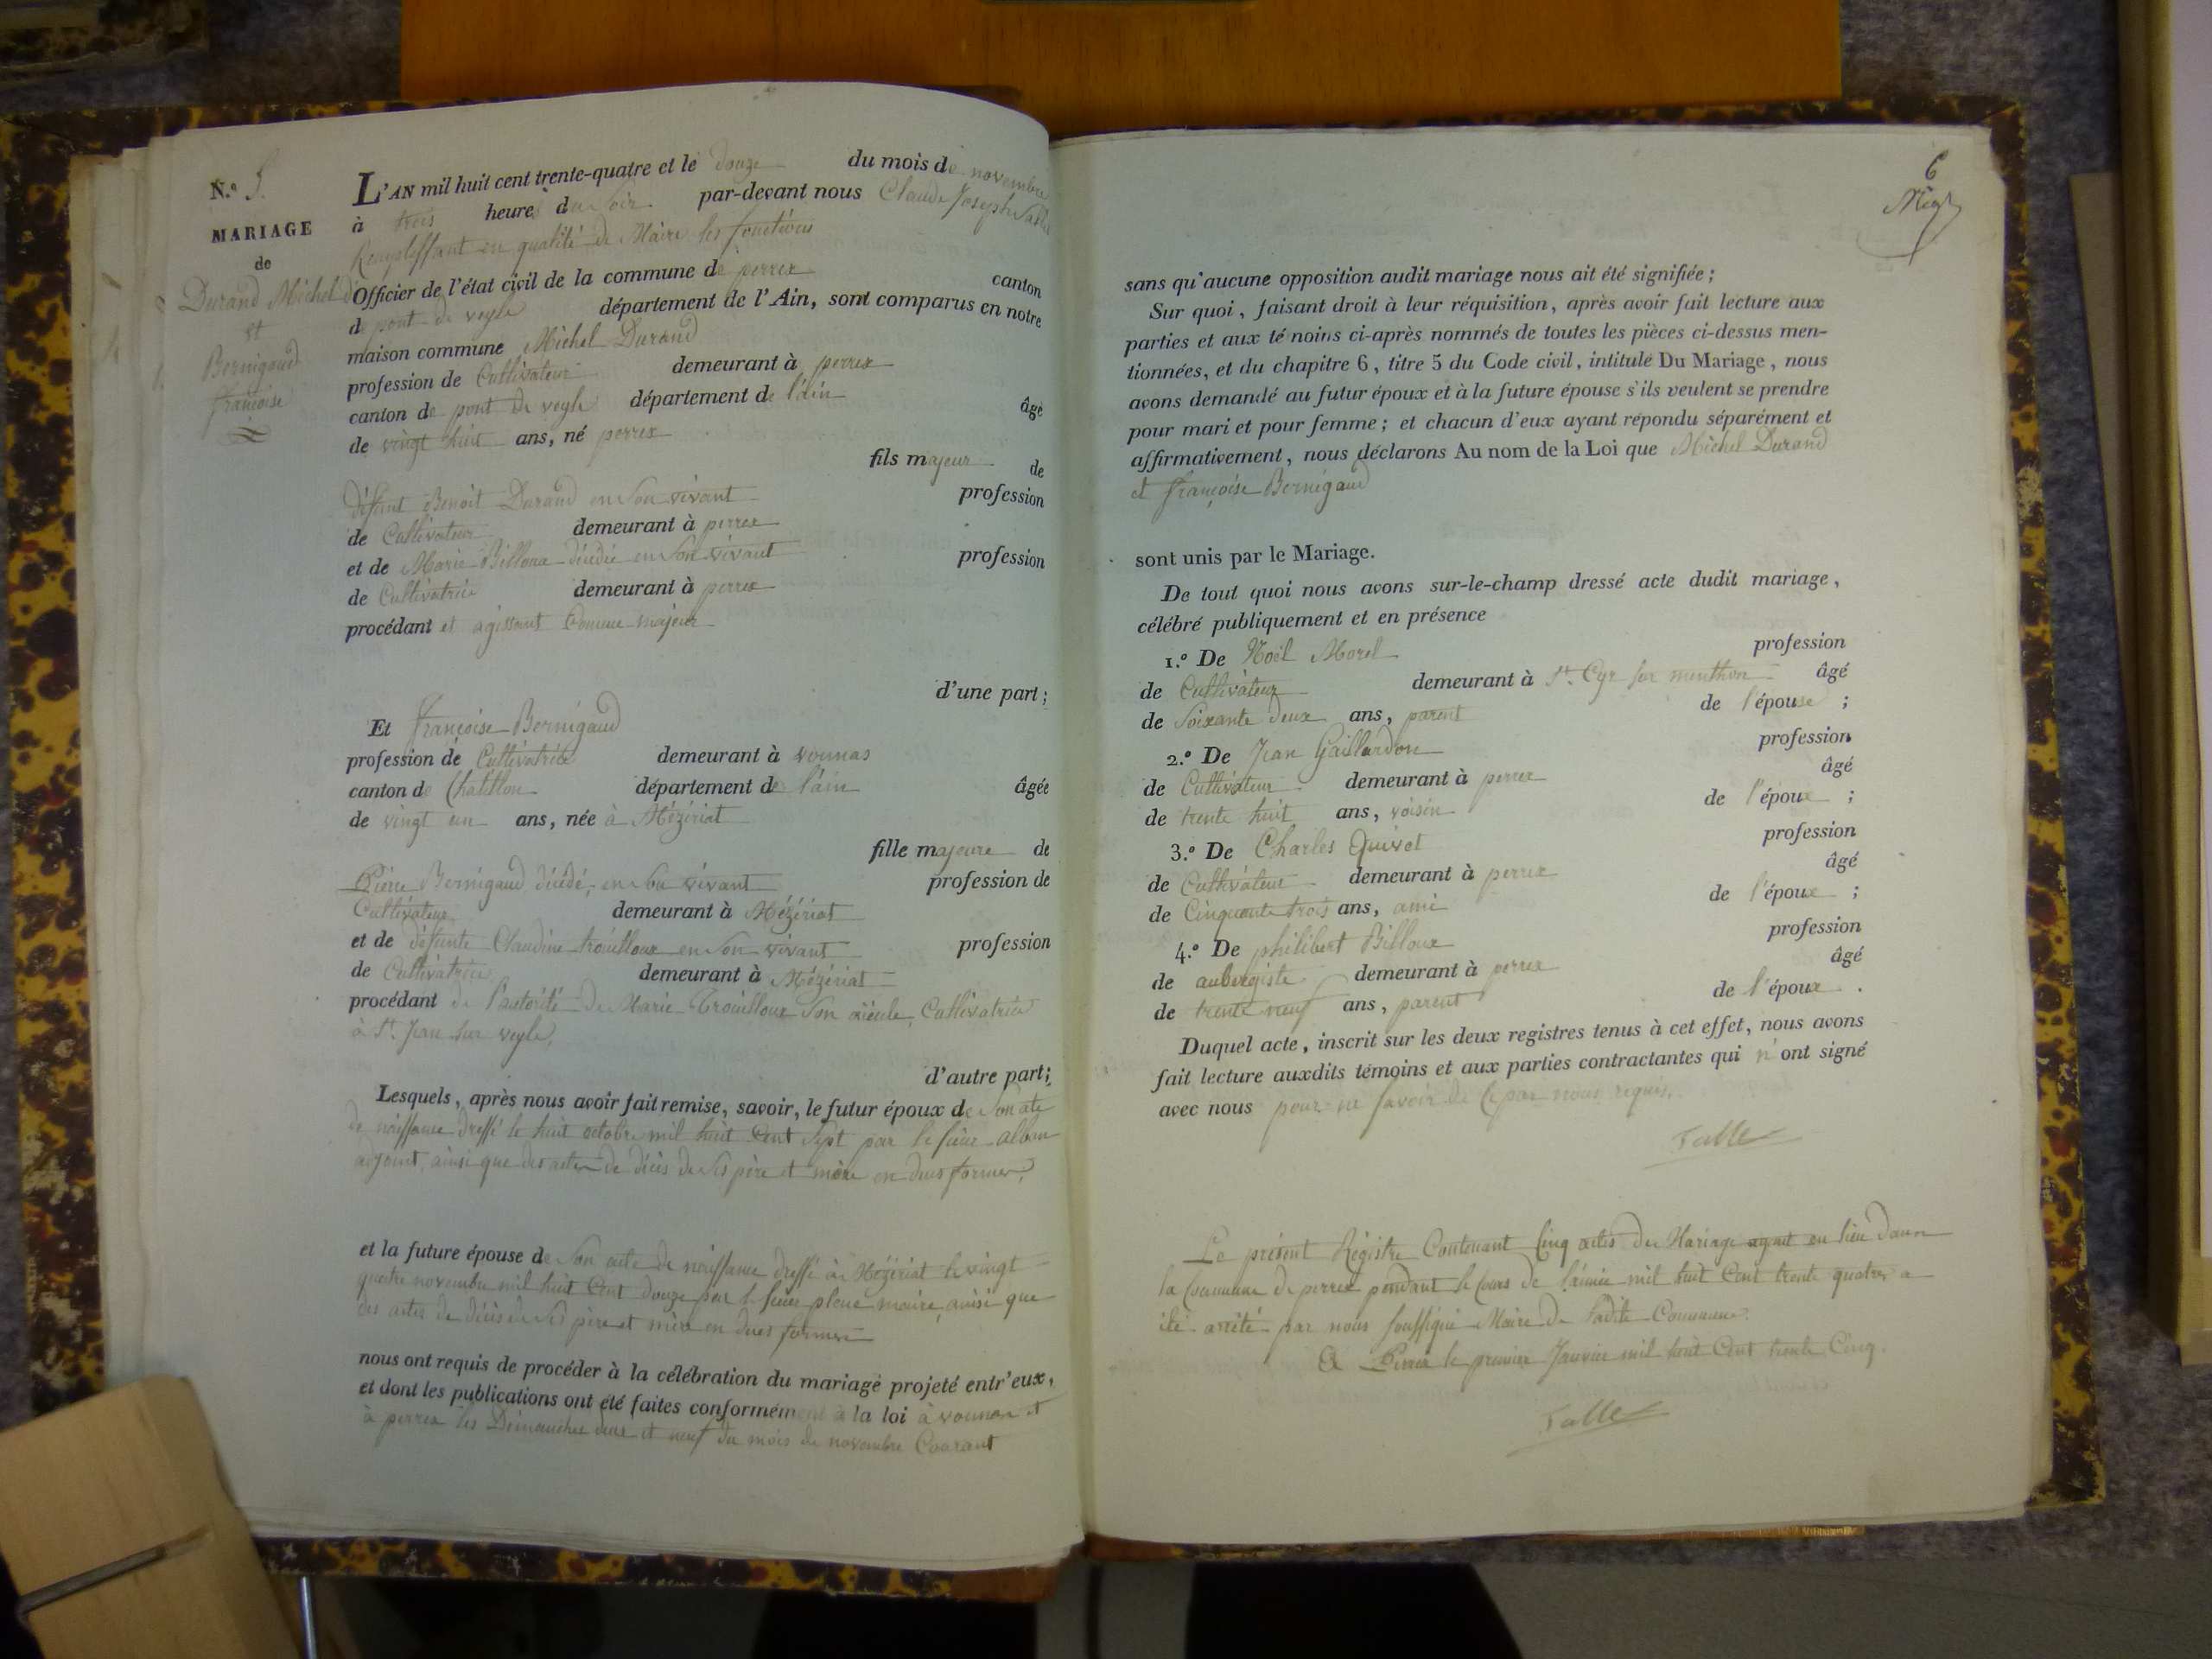 N.º 5.
MARIAGE
de
Durand Michel
et
Bernigaud
françoise
L'AN mil huit cent trente-quatre et le douze du mois de novembre
à trois heures du soir par-devant nous Claude Joseph
Remplissant en qualité de Maire les fonctions
d'Officier de l'état civil de la commune de perrex canton
de pont de veyle département de l'Ain, sont comparus en notre
maison commune Michel Durand
profession de Cultivateur demeurant à perrex
canton de pont de veyle département de l'ain âgé
de vingt huit ans, né perrex
fils majeur de
défunt Benoit Durand en son vivant profession
de Cultivateur demeurant à perrex
et de Marie Billoux décédée en son vivant profession
de Cultivatrice demeurant à perrex
procédant et agissant Comme majeur
d'une part;
Et françoise Bernigaud
profession de Cultivatrice demeurant à vounas
canton de Chatillon département de l'ain âgée
de vingt un ans, née à Mézériat
fille majeure de
Pierre Bernigaud décédé, en son vivant profession de
Cultivateur demeurant à Mézériat
et de défunte Claudine trouilloux en son vivant profession
de Cultivatrice demeurant à Mézériat
procédant de l'autorité de Marie Trouilloux son aïeule, Cultivatrice
à St. Jean sur veyle,
d'autre part;
Lesquels, après nous avoir fait remise, savoir, le futur époux de son ate
de naissance dressé le huit octobre mil huit Cent sept par le sieur alban
adjoint, ainsi que des actes de décès de ses père et mère en dues formes,
et la future épouse de son acte de naissance dressé à Mézériat le vingt
quatre novembre mil huit Cent douze par le sieur maire, ainsi que
des actes de décès de ses père et mère en dues formes
nous ont requis de procéder à la célébration du mariage projeté entr'eux,
et dont les publications ont été faites conformément à la loi à vounas et
à perrex les Dimanches deux et neuf du mois de novembre Courant
6
sans qu'aucune opposition audit mariage nous ait été signifiée;
Sur quoi, faisant droit à leur réquisition, après avoir fait lecture aux
parties et aux té noins ci-après nommés de toutes les pièces ci-dessus men-
tionnées, et du chapitre 6, titre 5 du Code civil, intitulé Du Mariage, nous
avons demandé au futur époux et à la future épouse s'ils veulent se prendre
pour mari et pour femme; et chacun d'eux ayant répondu séparément et
affirmativement, nous déclarons Au nom de la Loi que Michel Durand
et françoise Bernigaud
sont unis par le Mariage.
De tout quoi nous avons sur-le-champ dressé acte dudit mariage,
célébré publiquement et en présence
1.º De Noël Morel profession
de Cultivateur demeurant à St. Cyr sur menthon âgé
de soixante deux ans, parent de l'épouse ;
2.º De Jean Gaillardon profession
de Cultivateur demeurant à perrex âgé
de trente huit ans, voisin de l'époux ;
3.º De Charles Quivet profession
de Cultivateur demeurant à perrex âgé
de Cinquante trois ans, ami de l'époux ;
4.º De philibert Billoux profession
de aubergiste demeurant à perrex âgé
de trente neuf ans, parent de l'époux .
Duquel acte, inscrit sur les deux registres tenus à cet effet, nous avons
fait lecture auxdits témoins et aux parties contractantes qui n'ont signé
avec nous pour ne savoir de ce par nous requis.
Le présent Régistre Contenant Cinq actes de Mariage ayant eu lieu dans
la Commune de perrex pendant le Cours de l'année mil huit Cent trente quatre a
été arrêté par nous soussigné Maire de ladite Commune.
A Perrex le premier Janvier mil huit Cent trente Cinq.